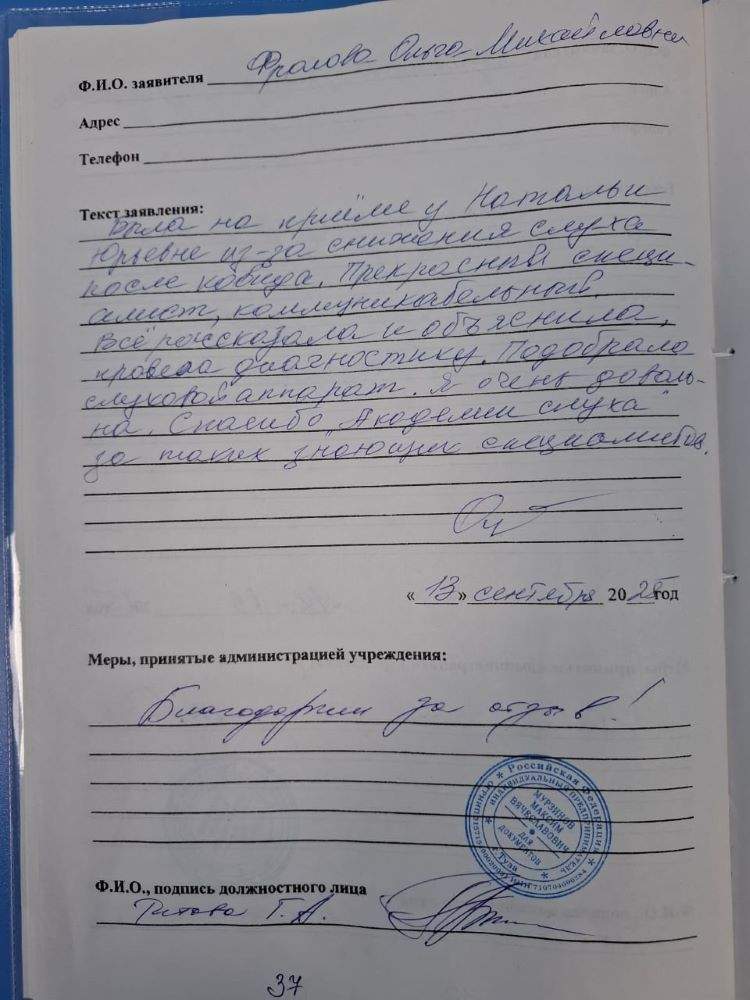 Ф.И.О. заявителя Фролова Ольга Михайловна
Адрес
Телефон
Текст заявления:
Была на приёме у Натальи
Юрьевне из-за снижения слуха
после ковида. Прекрасный специ-
алист, коммуникабельный.
Всё рассказала и объяснила,
провела диагностику. Подобрала
слуховой аппарат. Я очень доволь-
на. Спасибо "Академии слуха"
за таких знающих специалистов.
«13» сентября 2025 год
Меры, принятые администрацией учреждения:
Благодарим за отзыв!
* Российская Федерация *
ИНДИВИДУАЛЬНЫЙ ПРЕДПРИНИМАТЕЛЬ
МАКСИМ
ВЯЧЕСЛАВОВИЧ
ДЛЯ
ДОКУМЕНТОВ
г. Тула
Ф.И.О., подпись должностного лица
Титова Т. А.
37